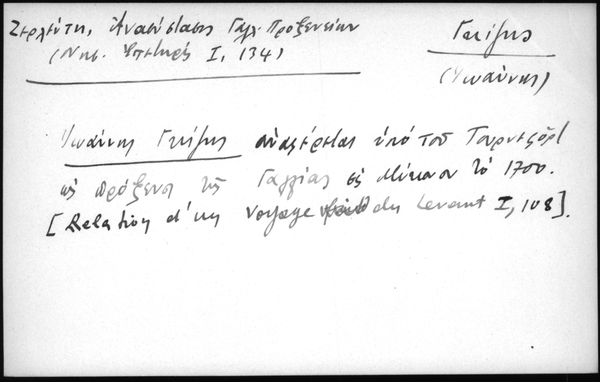 Ζερλέντη, Ἀνασύστασις Γαλ. Προξενείων
(Νησ. Ἐπετηρὶς Ι, 134)
Γκίζης
(Ἰωάννης)
Ἰωάννης Γκίζης ἀναφέρεται ὑπὸ τοῦ Τουρνεφὸρ
ὡς πρόξενος τῆς Γαλλίας εἰς Μύκονον τὸ 1700.
[Relation d'un Voyage du Levant I, 108].